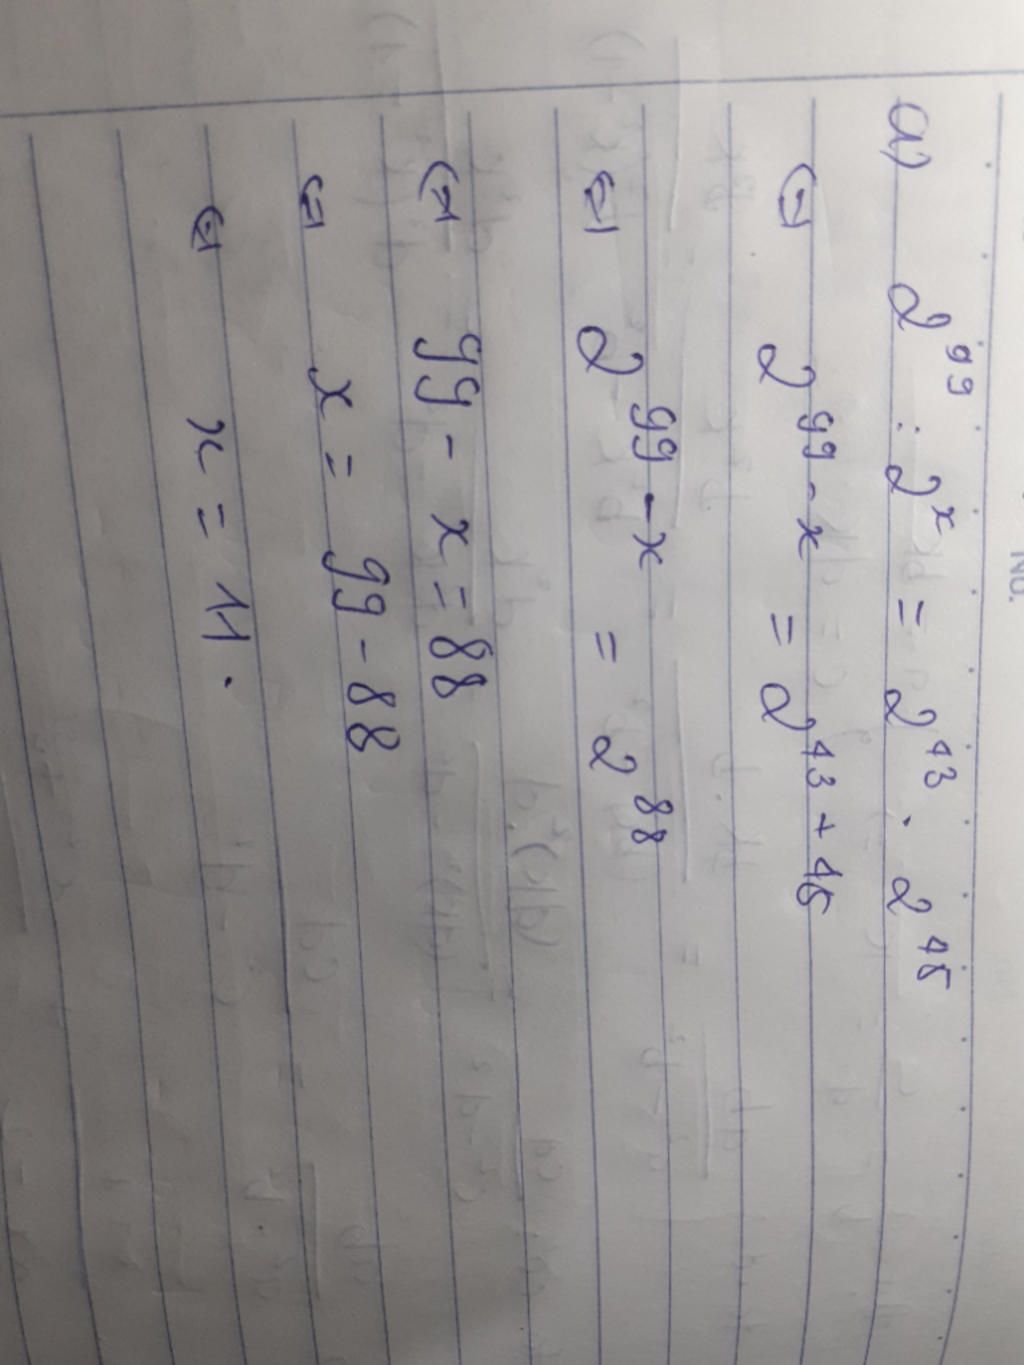 No.
a) 2^99 : 2^x = 2^43 . 2^45
⇔ 2^99-x = 2^43+45
⇔ 2^99-x = 2^88
⇔ 99 - x = 88
⇔ x = 99 - 88
⇔ x = 11.